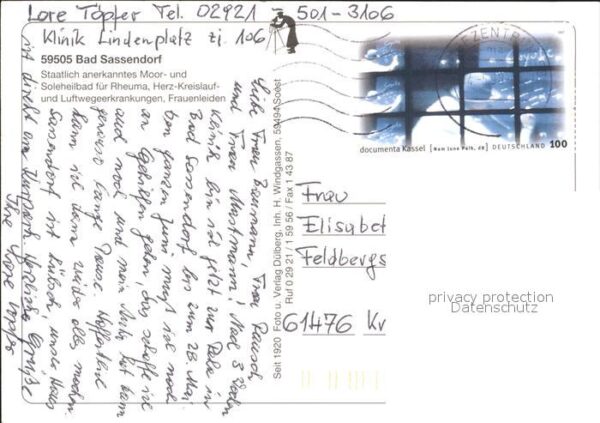 Lore Töpfer Tel. 02921 501-3106
Klinik Lindenplatz Zi. 106
59505 Bad Sassendorf
Staatlich anerkanntes Moor- und
Soleheilbad für Rheuma, Herz-Kreislauf-
und Luftwegeerkrankungen, Frauenleiden
Liebe Frau Baumann, Frau Rausch
und Frau Mustmann! Nach 3 Wochen
Klinik bin ich jetzt zur Reha in
Bad Sassendorf bis zum 28. Mai.
Den ganzen Juni muß ich noch
an gehen, das schaffe ich
und noch und mein Arzt hat dann
genauso lange Pause. Hoffentlich
kann ich dann wieder alles machen.
Sassendorf ist hübsch, unser Haus
ist direkt am Kurpark. Herzliche Grüße
Ihre Lore Töpfer
Seit 1920 Foto u. Verlag Dülberg, Inh. H. Windgassen, 59494 Soest
Ruf 0 29 21 / 1 59 56 / Fax 1 43 87
BRIEFZENTRUM
documenta Kassel [Nam June Paik, de] DEUTSCHLAND 100
Frau
Elisabet
Feldbergs
61476 Kr
privacy protection
Datenschutz